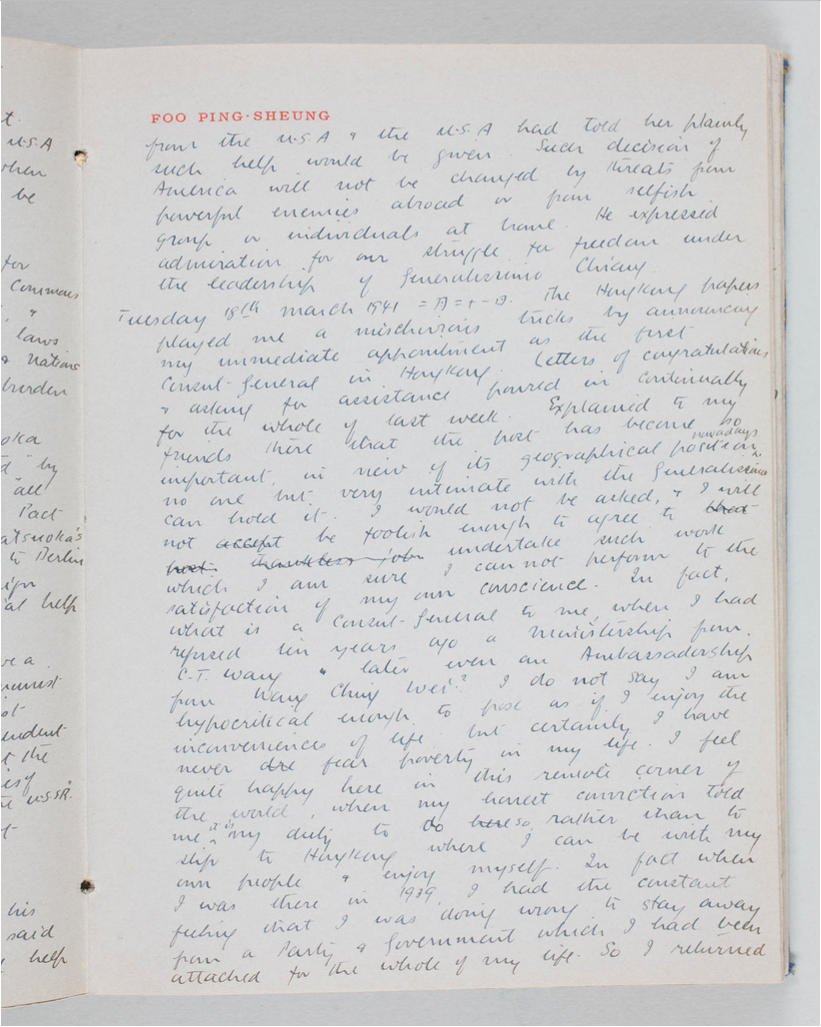 t.
U.S.A
when
be
for
Commons
"
laws
& nations
burden
oka
d" by
"all
Pact
atsuoka's
to Berlin
ign
al help
ve a
st
endent
t the
ies of
U.S.S.R.
t
his
said
help
FOO PING-SHEUNG
from the U.S.A & the U.S.A had told her plainly
such help would be given. Such decision of
America will not be changed by threats from
powerful enemies abroad or from selfish
group or individuals at home. He expressed
admiration for our struggle for freedom under
the leadership of Generalissimo Chiang.
Tuesday 18th march 1941 = 二月二十一日. The HongKong papers
played me a mischievous tricks by announcing
my immediate appointment as the first
Consul-General in HongKong. Letters of congratulations
& asking for assistance poured in continually
for the whole of last week. Explained to my
friends there that the post has become so
important, in view of its geographical position nowadays,
no one but very intimate with the Generalissimo
can hold it. I would not be asked, & I will
not accept be foolish enough to agree to that
post. thankless job undertake such work
which I am sure I can not perform to the
satisfaction of my own conscience. In fact,
what is a Consul-General to me, when I had
refused ten years ago a ministership from
C.T. Wang & later even an Ambassadorship
from Wang Ching Wei? I do not say I am
hypocritical enough to pose as if I enjoy the
inconveniences of life. but certainly I have
never fear poverty in my life. I feel
quite happy here in this remote corner of
the world, when my honest conviction told
me it is my duty to do here so, rather than to
slip to HongKong where I can be with my
own people & enjoy myself. In fact when
I was there in 1939, I had the constant
feeling that I was doing wrong to stay away
from a Party & Government which I had been
attached for the whole of my life. So I returned